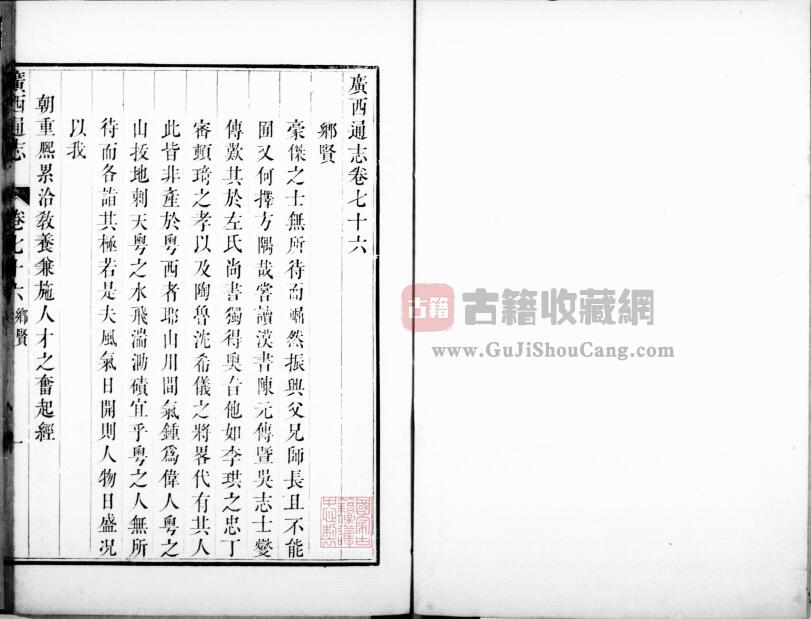 廣西通志卷七十六
鄉賢
豪傑之士無所待而崛然振興父兄師長且不能
囿又何擇方隅哉嘗讀漢書陳元傳暨吳志士燮
傳歎其於左氏尚書獨得奧旨他如李珙之忠丁
審頓琦之孝以及陶魯沈希儀之將畧代有其人
此皆非產於粵西者耶山川間氣鍾爲偉人粵之
山拔地刺天粵之水飛湍湧磧宜乎粵之人無所
待而各詣其極若是夫風氣日開則人物日盛况
以我
朝重熙累洽教養兼施人才之奮起經
廣西通志
卷七十六
鄉賢
一
古籍
古籍收藏網
www.GuJiShouCang.com